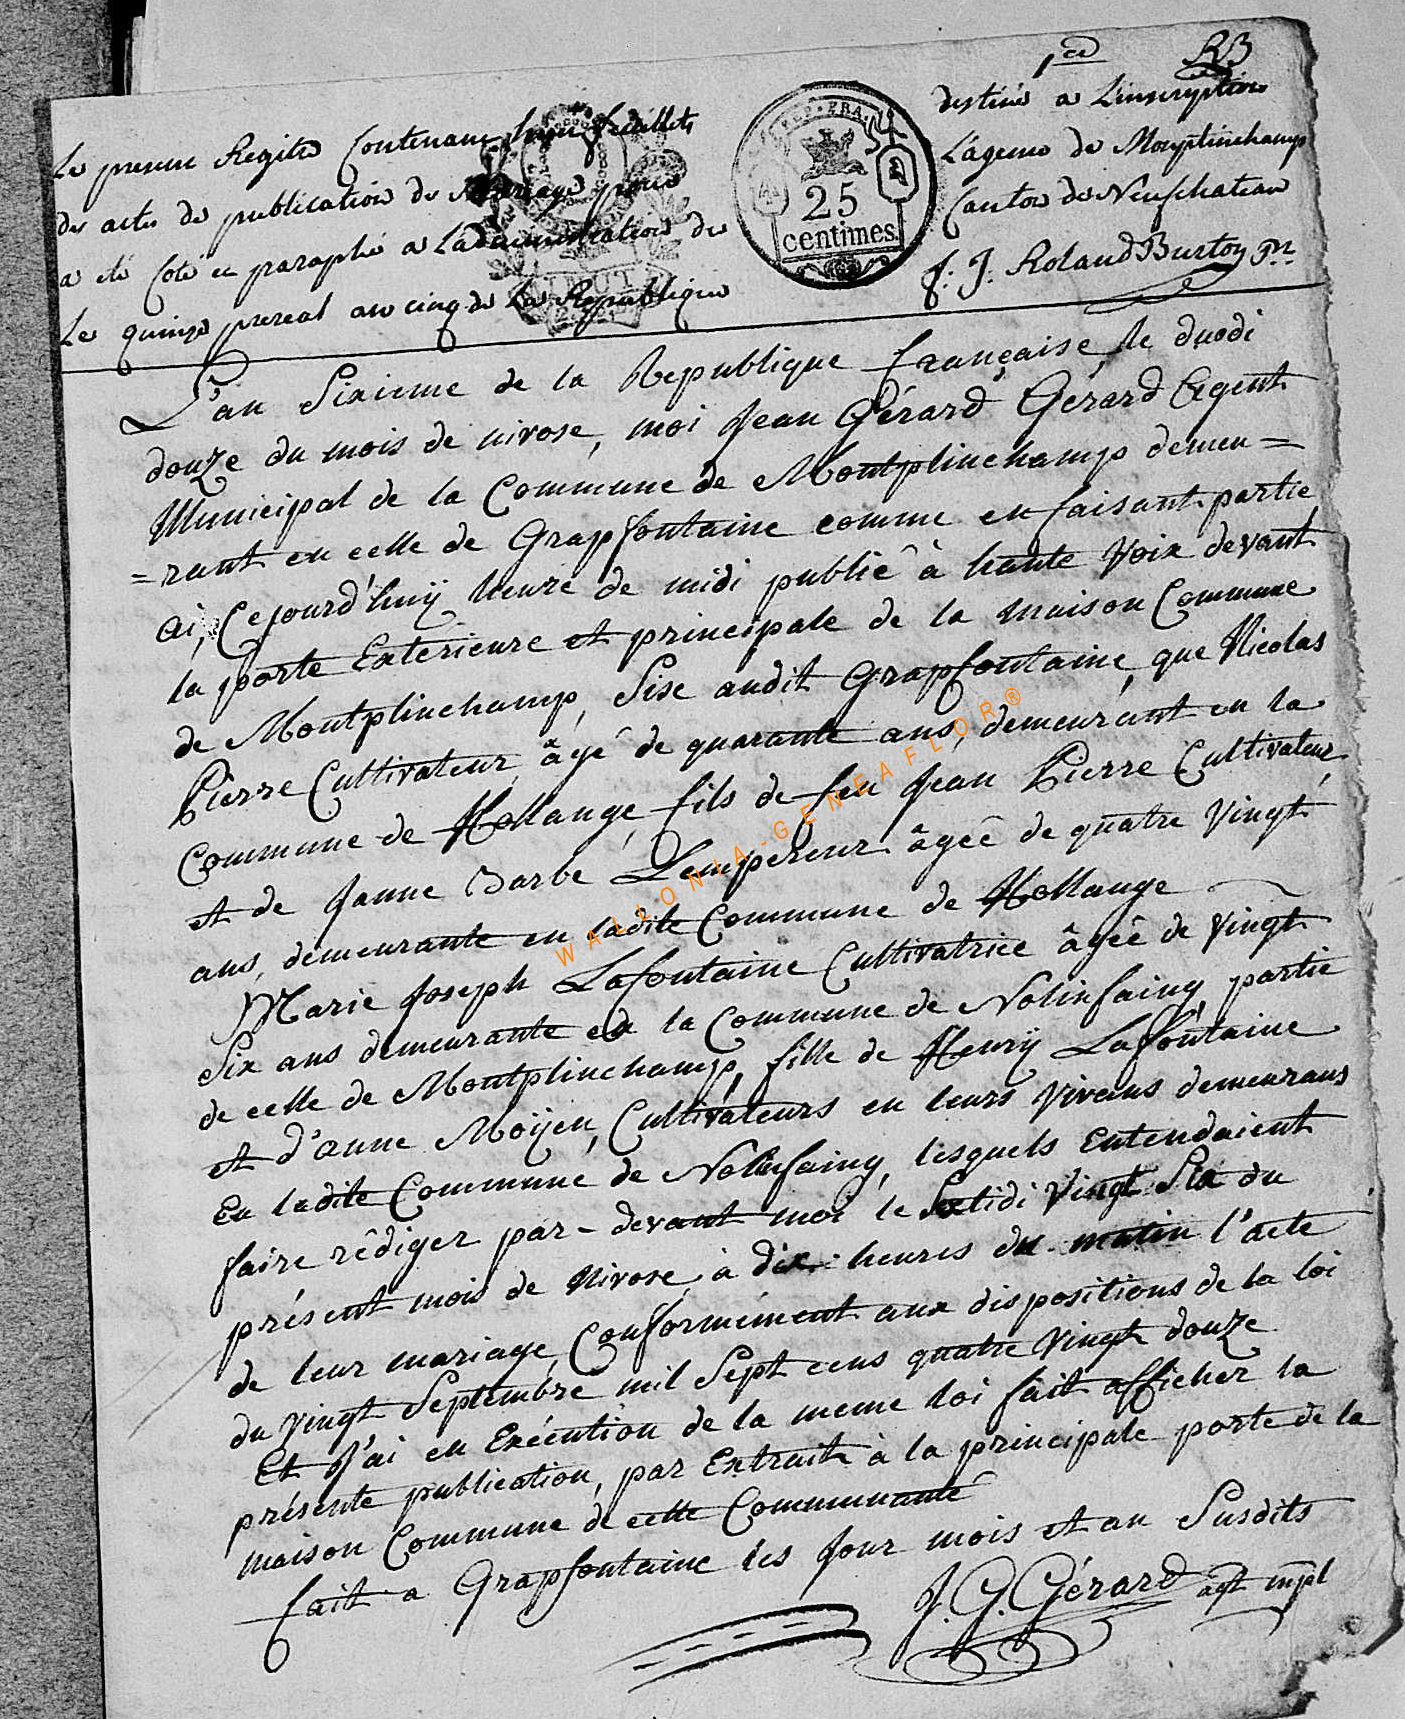 1re RB
Le present Registre Contenant huit feuillets destiné a L'inscription
des actes de publication de Mariage pour L'agence de Montplinchamp
a eté Coté et paraphé a L'administration du Canton de Neufchateau
Le quinze prereal an cinq de La Republique F: J: Roland Burton Pnt
REP. FRA.
25
centimes
L'an Sixieme de la Republique française, le duodi
douze du mois de nivose, moi Jean Gérard Gérard Agent
Municipal de la Commune de Montplinchamp demeu=
=rant en celle de Grapfontaine comme en faisant partie
ai, Cejourd'huÿ heure de midi publié à haute Voix devant
la porte Exterieure et principale de la maison Commune
de Montplinchamp, Sise audit Grapfontaine, que Nicolas
Pierre Cultivateur, âgé de quarante ans, demeurant en la
Commune de Hollange, fils de feu Jean Pierre Cultivateur,
et de Janne Barbe Lempereur âgée de quatre Vingt
ans, demeurante en ladite Commune de Hollange
Marie Joseph Lafontaine Cultivatrice âgée de Vingt
Six ans demeurante en la Commune de Nolinfaing, partie
de celle de Montplinchamp, fille de Henrÿ Lafontaine
et d'anne Moÿen, Cultivateurs en leurs Vivans demeurans
En ladite Commune de Nolinfaing, lesquels Entendaient
faire rédiger par-devant moi le Sextidi Vingt Six du
présent mois de Nivose, à dix heures du matin l'acte
de leur mariage, Conformément aux dispositions de la loi
du Vingt Septembre mil Sept cens quatre Vingt douze
Et J'ai en Exécution de la meme loi fait afficher la
présente publication, par Extrait à la principale porte de la
maison Commune de cette Communauté
fait a Grapfontaine les Jour mois et an Susdits
J. G. Gérard agt mpl
WALLONIA-GENEAFLOR®